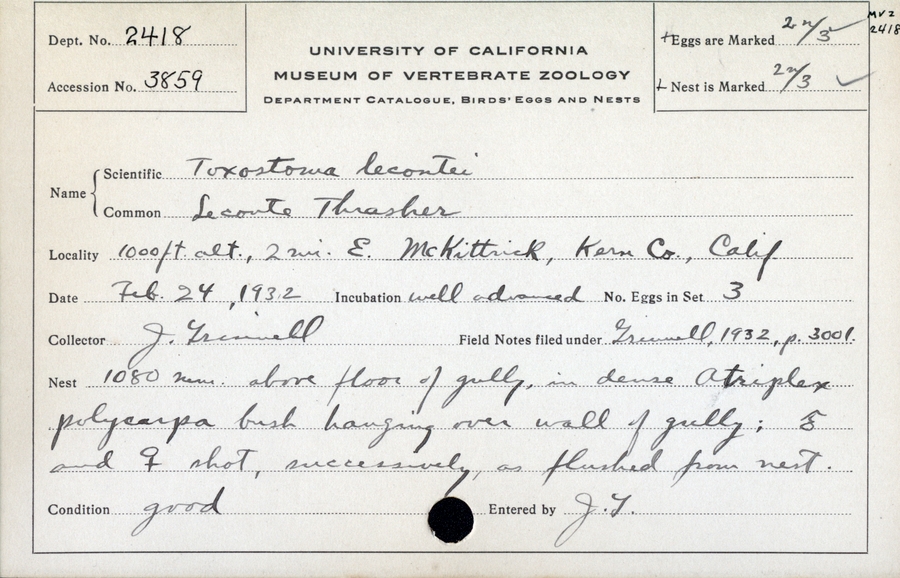 MVZ
2418
Dept. No. 2418
Accession No. 3859
UNIVERSITY OF CALIFORNIA
MUSEUM OF VERTEBRATE ZOOLOGY
DEPARTMENT CATALOGUE, BIRDS' EGGS AND NESTS
+Eggs are Marked 2n/3 ✓
+ Nest is Marked 2n/3 ✓
Name { Scientific Toxostoma lecontei
Common Leconte Thrasher
Locality 1000 ft. alt., 2 mi. E. McKittrick, Kern Co., Calif
Date Feb. 24, 1932 Incubation well advanced No. Eggs in Set 3
Collector J. Grinnell Field Notes filed under Grinnell, 1932, p. 3001.
Nest 1080 mm. above floor of gully, in dense Atriplex
polycarpa bush hanging over wall of gully;
and ♀ shot, successively, as flushed from nest.
Condition good Entered by J.G.